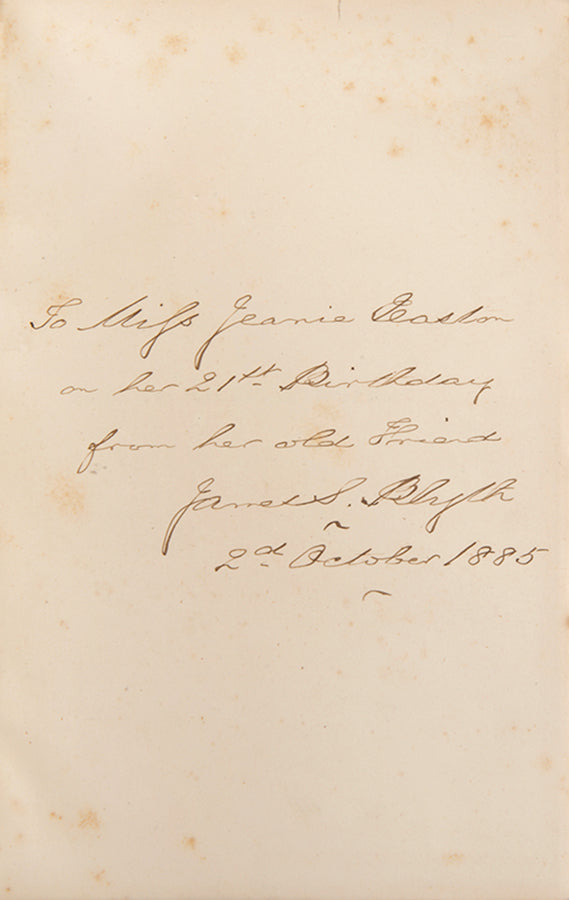 To Miss Jeanie Easton
on her 21th Birthday
from her old Friend
James S. Blyth
2d October 1885